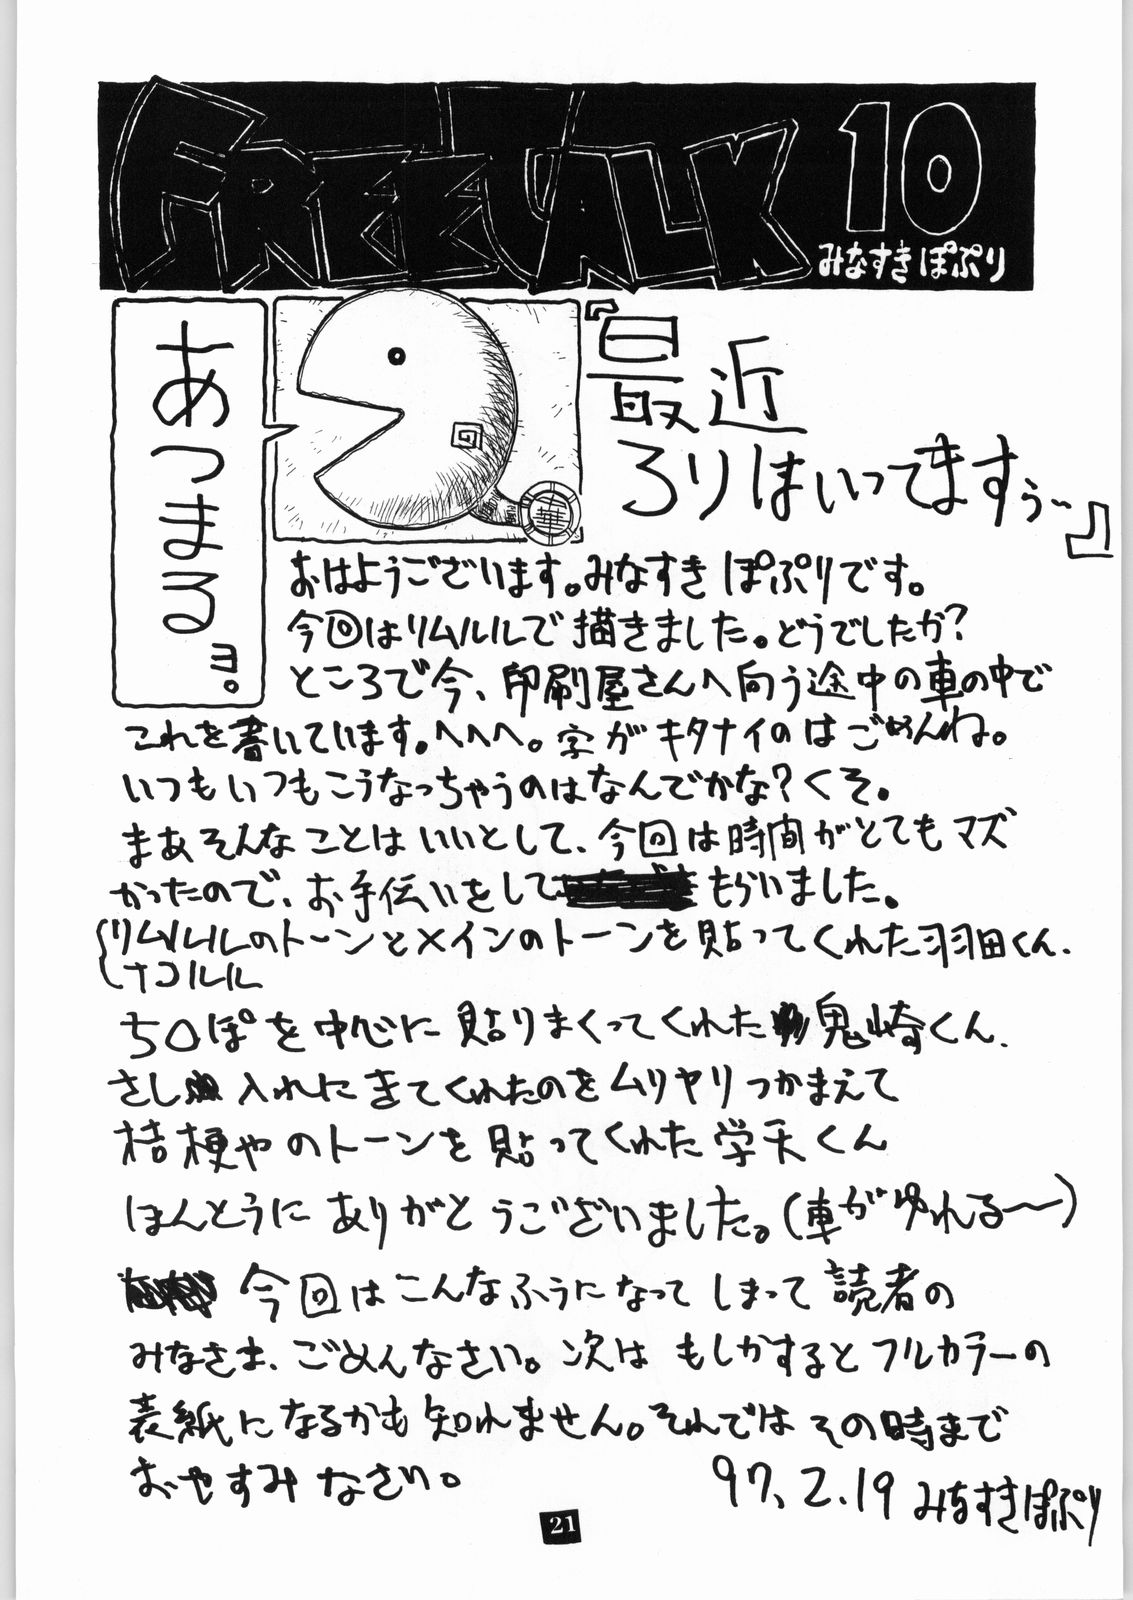 FREE TALK 10
みなすきぽぷり
あつまるヨ。
回
華
『最近
ろりはいってますぅ〜』
おはようございます。みなすきぽぷりです。
今回はリムルルで描きました。どうでしたか?
ところで今、印刷屋さんへ向う途中の車の中で
これを書いています。へへへ。字がキタナイのはごめんね。
いつもいつもこうなっちゃうのはなんでかな?くそ。
まあそんなことはいいとして、今回は時間がとてもマズ
かったので、お手伝いをしてもらいました。
リムルルのトーンとメインのトーンを貼ってくれた羽田くん、
ナコルル
ち○ぽを中心に貼りまくってくれた鬼崎くん、
さし入れにきてくれたのをムリヤリつかまえて
桔梗やのトーンを貼ってくれた学天くん
ほんとうにありがとうございました。(車がゆれる〜)
今回はこんなふうになってしまって読者の
みなさま、ごめんなさい。次はもしかするとフルカラーの
表紙になるかも知れません。それではその時まで
おやすみなさい。
97.2.19 みなすきぽぷり
21